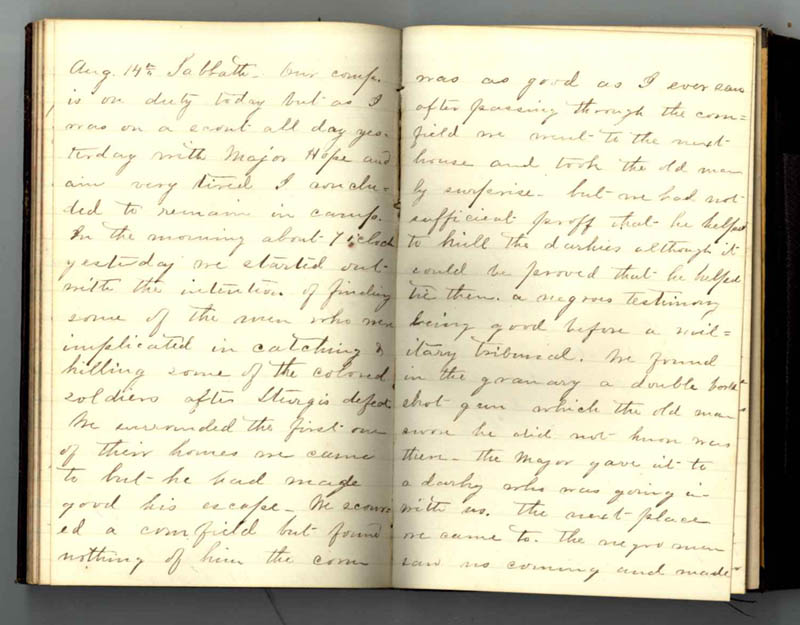 Aug. 14th Sabbath - Our comp.
is on duty today but as I
was on a scout all day yes-
terday with Major Hope and
am very tired I conclu-
ded to remain in camp.
In the morning about 7 oclock
yesterday we started out
with the intention of finding
some of the men who were
implicated in catching &
killing some of the colored
soldiers after Sturgis defeat
We surrounded the first one
of their homes we came
to but he had made
good his escape - We scour
ed a cornfield but found
nothing of him the corn
was as good as I ever saw
after passing through the corn=
field we went to the next
house and took the old man
by surprise - but we had not
sufficient proff that he helped
to kill the darkies although it
could be proved that he helped
tie them. a negroes testimony
being good before a mil=
itary tribunal. We found
in the granary a double
shot gun which the old man
swore he did not know was
there - the Major gave it to
a darky who was going in
with us. The next place
we came to. the negro men
saw us coming and made